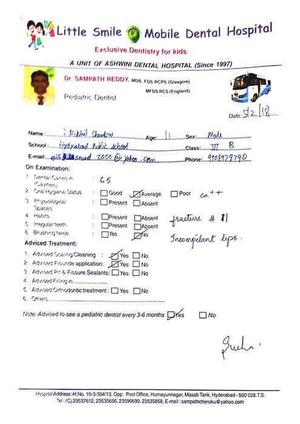 Little Smile Mobile Dental Hospital
Exclusive Dentistry for kids
A UNIT OF ASHWIN DENTAL HOSPITAL (Since 1997)
Dr. SAMPATH REDDY, MDS, FDS RCPS (Glasgow)
MFDS RCS (England)
Pediatric Dentist
Date: 5/2/18
Name : Age: 11 Sex: Male
School : Hyderabad Public School Class: VI B
E-mail : Phone:
On Examination:
1. Dental Caries in 65
2. Oral Hygiene Status : Good Average Poor ca ++
3. Physiological Spaces : Present Absent
4. Habits : Present Absent fracture #
5. Irregular teeth : Present Absent
6. Brushing twice : Yes No Incompetent lips.
Advised Treatment:
1. Advised Scaling/Cleaning : Yes No
2. Advised Flouride application: Yes No
3. Advised Pit & Fissure Sealants: Yes No
4. Advised Filling in
5. Advised Orthodontic treatment : Yes No
6. Others
Note: Advised to see a pediatric dentist every 3-6 months Yes No
Hospital Address: H.No. 16-3-304/13, Opp: Post Office, Humayunnagar, Masab Tank, Hyderabad - 500 028 T.S.
Tel: (C) 23537612, 23535656, 23590690, 23535858, E-mail : sampathcheruku@yahoo.com